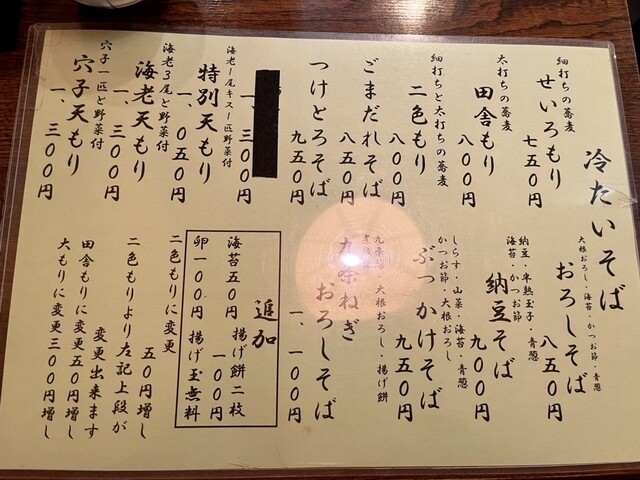 冷たいそば
細打ちの蕎麦
せいろもり
七五〇円
太打ちの蕎麦
田舎もり
八〇〇円
細打ちと太打ちの蕎麦
二色もり
八〇〇円
ごまだれそば
八五〇円
つけとろそば
九五〇円
一、三〇〇円
海老1尾キス1匹野菜付
特別天もり
一、〇五〇円
海老3尾と野菜付
海老天もり
一、三〇〇円
穴子一匹と野菜付
穴子天もり
一、三〇〇円
大根おろし・海苔・かつお節・青葱
おろしそば
八五〇円
納豆・半熟玉子
海苔・かつお節 青葱
納豆そば
九〇〇円
しらす・山菜・海苔・青葱
かつお節・大根おろし
ぶっかけそば
九五〇円
九条葱・大根おろし・揚げ餅
九条ねぎ
おろしそば
一、一〇〇円
追加
海苔五〇円 揚げ餅二枚
一〇〇円
卵一〇〇円 揚げ玉無料
二色もりに変更
五〇円増し
二色もりより左記上段が
変更出来ます
田舎もりに変更五〇円増し
大もりに変更三〇〇円増し